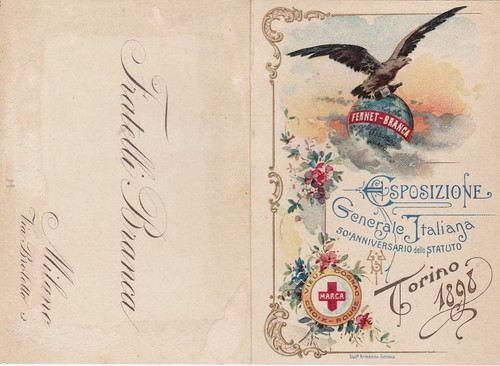 Fratelli Branca
Milano
Via Broletto
FERNET-BRANCA
ESPOSIZIONE
Generale Italiana
50º ANNIVERSARIO dello STATUTO
Torino
1898
VIEUX COGNAC
MARCA
CROIX-ROUGE